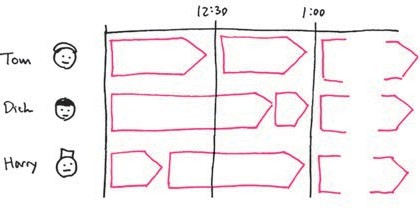 12:30 1:00
Tom
Dick
Harry